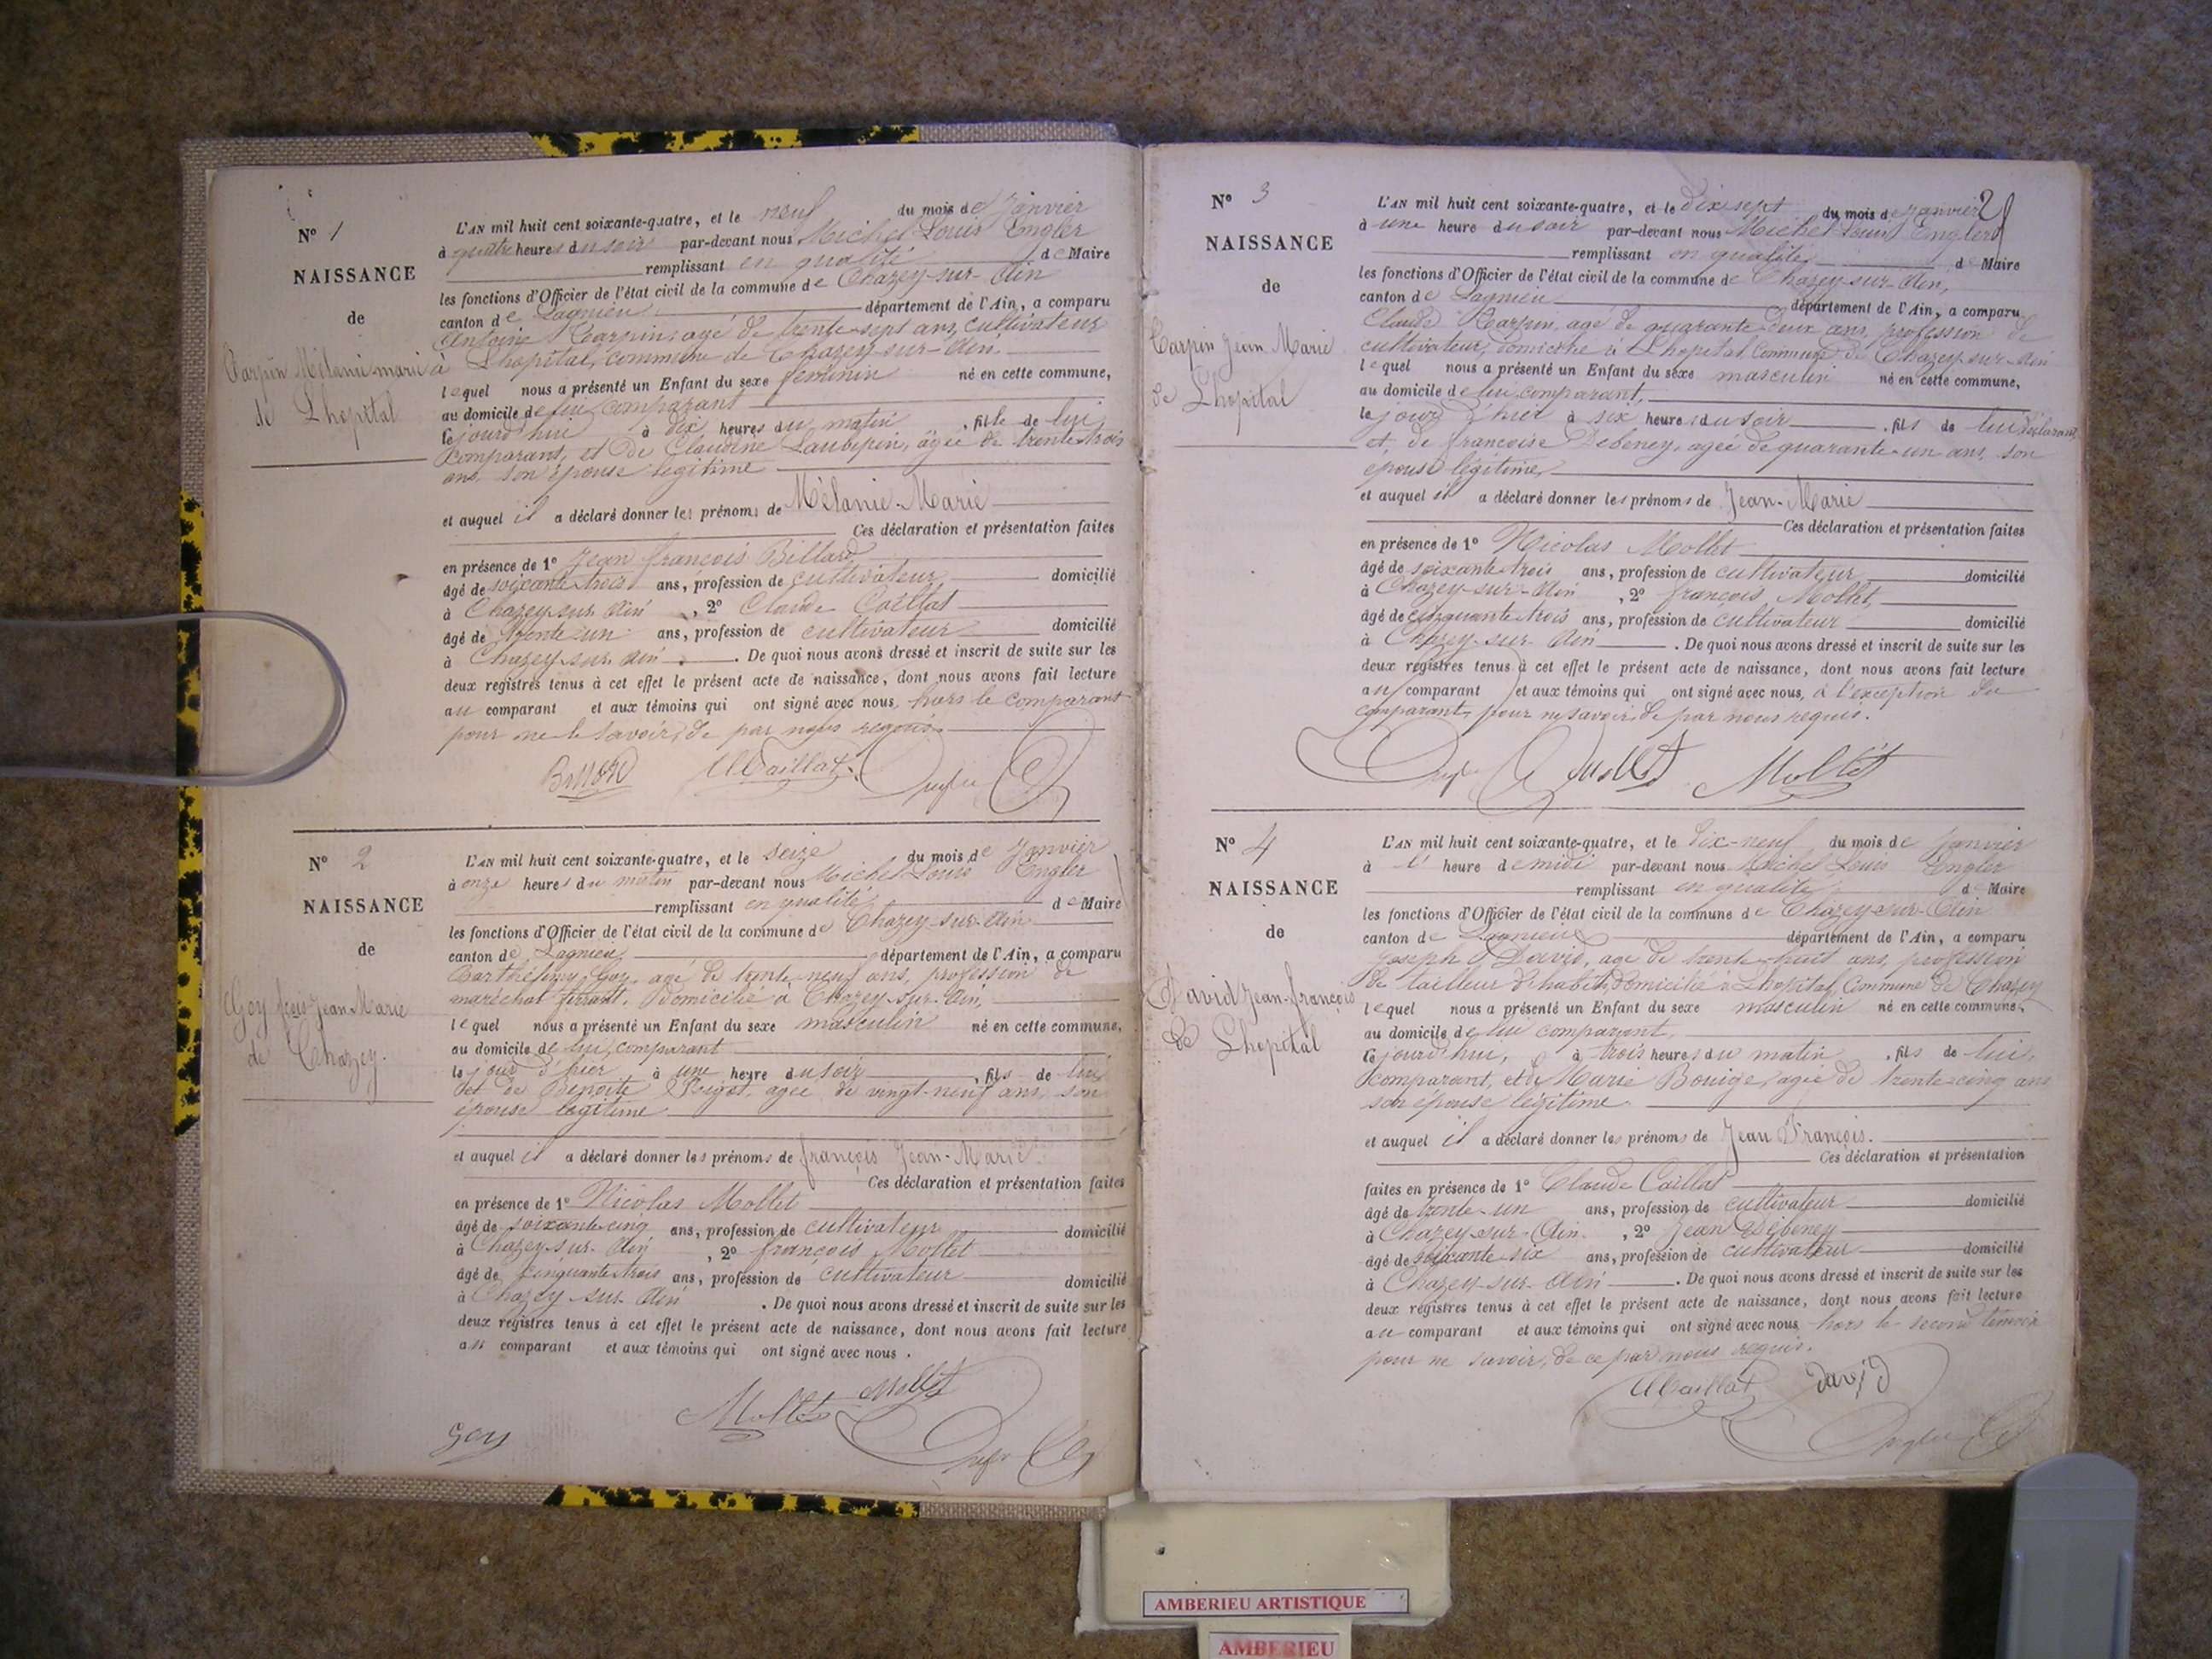 N° 1
NAISSANCE
de
Carpin Mélanie marie
de Lhopital
L'AN mil huit cent soixante-quatre, et le neuf du mois de Janvier
à quatre heures du soir par-devant nous Michel Louis Engler
remplissant en qualité de Maire
les fonctions d'Officier de l'état civil de la commune de Chazey-sur-Ain
canton de Lagnieu département de l'Ain, a comparu
Antoine Carpin, agé de trente-sept ans, cultivateur
à Lhopital, commune de Chazey-sur-Ain
lequel nous a présenté un Enfant du sexe féminin né en cette commune,
au domicile de lui comparant
le jourd'hui à dix heures du matin , fille de lui
comparant, et de Claudine Laubepin, âgée de trente trois
ans, son épouse légitime
et auquel il a déclaré donner les prénoms de Mélanie-Marie
Ces déclaration et présentation faites
en présence de 1° Jean françois Billard
âgé de soixante trois ans, profession de cultivateur, domicilié
à Chazey sur Ain , 2° Claude Caillat
âgé de trente un ans, profession de cultivateur domicilié
à Chazey sur Ain . De quoi nous avons dressé et inscrit de suite sur les
deux registres tenus à cet effet le présent acte de naissance, dont nous avons fait lecture
au comparant et aux témoins qui ont signé avec nous, hors le comparant
pour ne le savoir, de par nous requis.
Billard Caillat Engler
N° 2
NAISSANCE
de
Goy fçois Jean Marie
de Chazey.
L'AN mil huit cent soixante-quatre, et le seize du mois de Janvier
à onze heures du matin par-devant nous Michel Louis Engler
remplissant en qualité de Maire
les fonctions d'Officier de l'état civil de la commune de Chazey-sur-Ain
canton de Lagnieu, département de l'Ain, a comparu
Barthélemy Goy, agé de trente-neuf ans, profession de
maréchal ferrant, domicilié à Chazey-sur-Ain,
lequel nous a présenté un Enfant du sexe masculin né en cette commune,
au domicile de lui, comparant
le jour d'hier à une heure du soir , fils de lui
et de Benoite agée de vingt-neuf ans, son
épouse légitime
et auquel il a déclaré donner les prénoms de françois Jean-Marie.
Ces déclaration et présentation faites
en présence de 1° Nicolas Mollet
âgé de soixante cinq ans, profession de cultivateur domicilié
à Chazey-sur-Ain , 2° françois Mollet
âgé de cinquante trois ans, profession de cultivateur domicilié
à Chazey sur Ain . De quoi nous avons dressé et inscrit de suite sur les
deux registres tenus à cet effet le présent acte de naissance, dont nous avons fait lecture
au comparant et aux témoins qui ont signé avec nous .
Goy Mollet Mollet Engler
N° 3
NAISSANCE
de
Carpin Jean Marie
de Lhopital
2
L'AN mil huit cent soixante-quatre, et le dix sept du mois de Janvier
à une heure du soir par-devant nous Michel Louis Engler
remplissant en qualité de Maire
les fonctions d'Officier de l'état civil de la commune de Chazey-sur-Ain,
canton de Lagnieu département de l'Ain, a comparu
Claude Carpin, agé de quarante deux ans, profession de
cultivateur, domicilié à Lhopital commune de Chazey-sur-Ain
lequel nous a présenté un Enfant du sexe masculin né en cette commune,
au domicile de lui, comparant,
le jour d'hier à six heures du soir , fils de lui déclarant
et de françoise Debeney, agée de quarante-un ans, son
épouse légitime,
et auquel il a déclaré donner les prénoms de Jean-Marie
Ces déclaration et présentation faites
en présence de 1° Nicolas Mollet
âgé de soixante trois ans, profession de cultivateur domicilié
à Chazey-sur-Ain , 2° françois Mollet,
âgé de cinquante trois ans, profession de cultivateur domicilié
à Chazey-sur-Ain . De quoi nous avons dressé et inscrit de suite sur les
deux registres tenus à cet effet le présent acte de naissance, dont nous avons fait lecture
au comparant et aux témoins qui ont signé avec nous, à l'exception du
comparant, pour ne savoir, de par nous requis.
Engler Mollet Mollet
N° 4
NAISSANCE
de
David Jean-françois
de Lhopital
L'AN mil huit cent soixante-quatre, et le dix-neuf du mois de Janvier
à l' heure de midi par-devant nous Michel Louis Engler
remplissant en qualité de Maire
les fonctions d'Officier de l'état civil de la commune de Chazey-sur-Ain
canton de Lagnieu département de l'Ain, a comparu
Joseph David, agé de trente-huit ans, profession
de tailleur d'habits, domicilié à Lhopital, Commune de Chazey
lequel nous a présenté un Enfant du sexe masculin né en cette commune,
au domicile de lui comparant,
le jourd'hui, à trois heures du matin , fils de lui,
comparant, et de Marie Bouige, agée de trente-cinq ans
son épouse légitime
et auquel il a déclaré donner les prénoms de Jean François.
Ces déclaration et présentation
faites en présence de 1° Claude Caillat
âgé de trente-un ans, profession de cultivateur domicilié
à Chazey-sur-Ain , 2° Jean Debeney
âgé de soixante six ans, profession de cultivateur domicilié
à Chazey-sur-Ain . De quoi nous avons dressé et inscrit de suite sur les
deux registres tenus à cet effet le présent acte de naissance, dont nous avons fait lecture
au comparant et aux témoins qui ont signé avec nous, hors le second témoin
pour ne savoir, de ce par nous requis.
Caillat david
Engler
AMBERIEU ARTISTIQUE
AMBERIEU